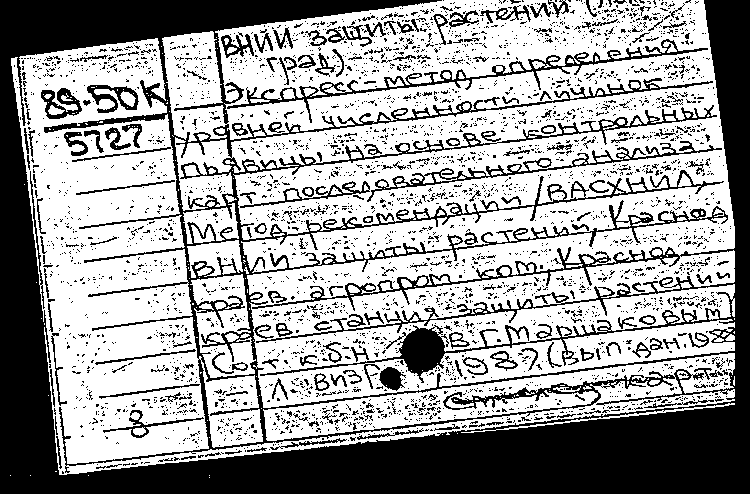 ВНИИ защиты растений
град).
89-50К
5727
Экспресс-метод определения
уровней численности личинок
пьявицы на основе контрольных
карт последовательного анализа:
Метод. рекомендации / ВАСХНИЛ,
ВНИИ защиты растений, Краснод.
краев. агропром. ком., Краснод.
краев. станция защиты растений
(Сост. к.б.н. В.Г. Маршаковым)
Л. ВИЗР, 1987. (Вып. дан. 1988
8